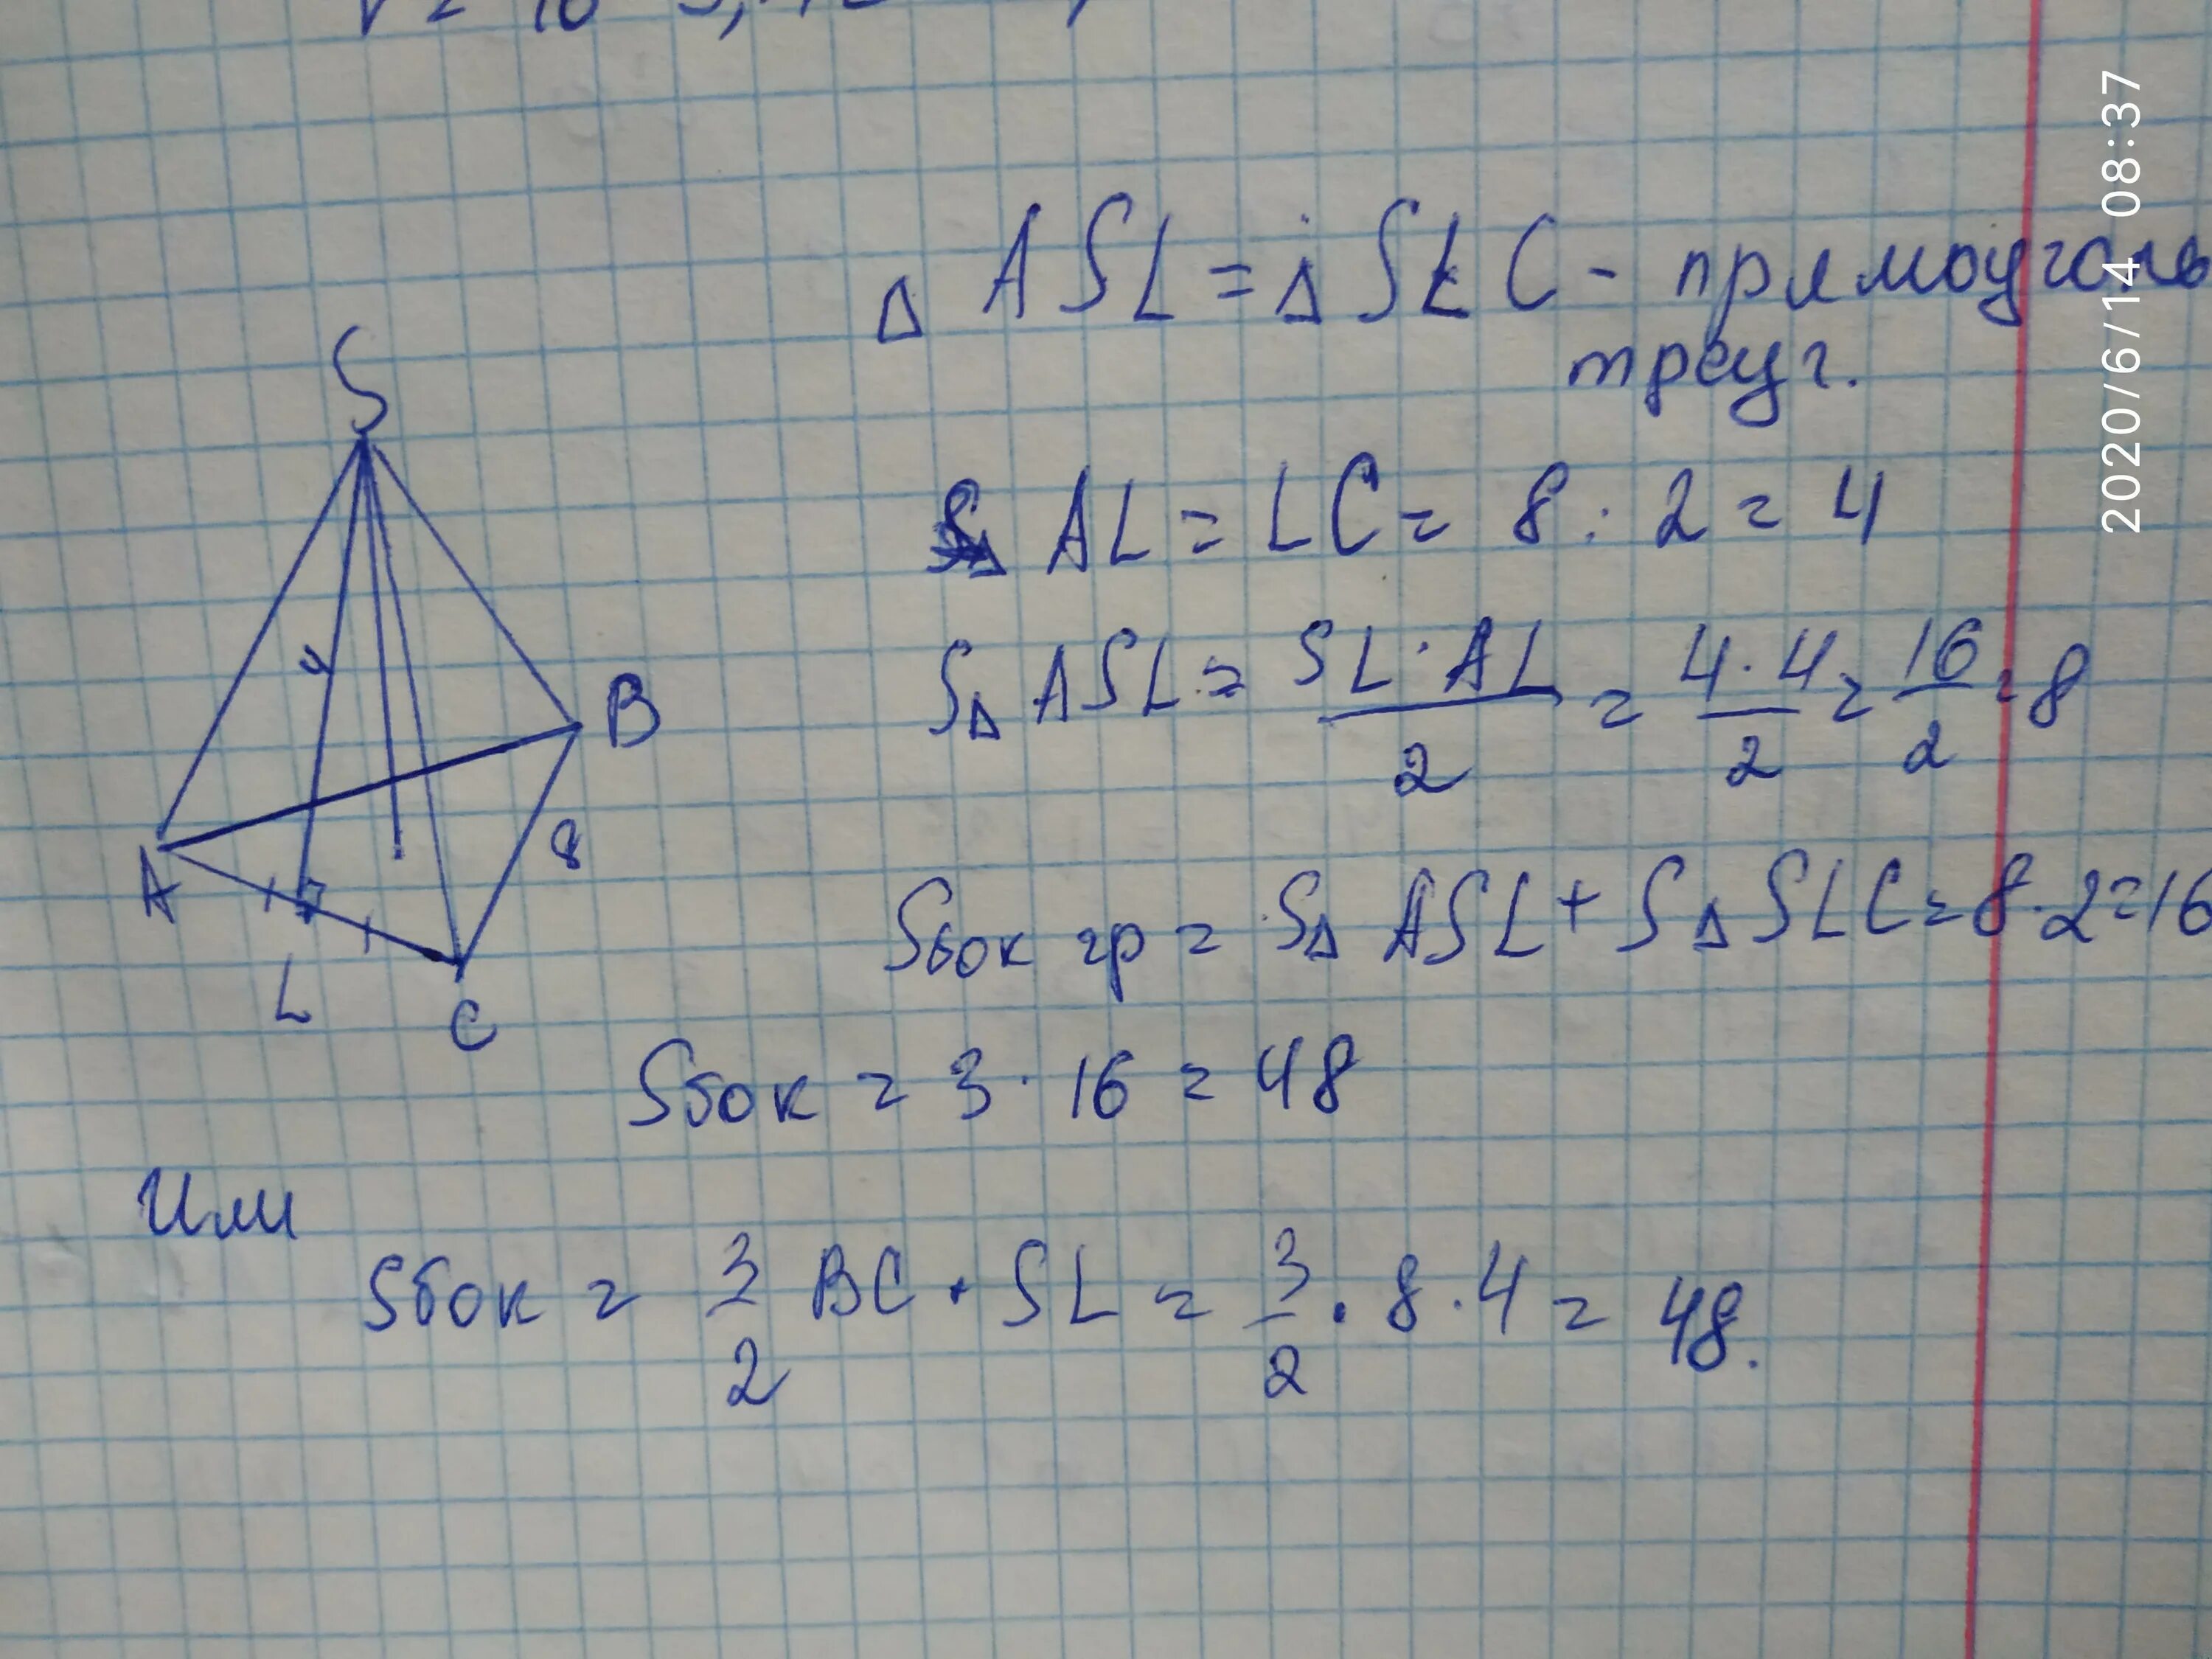 △ ASL = △ SLC - прямоуголь
треуг.
AL = LC = 8 : 2 = 4
S△ ASL = SL · AL / 2 = 4 · 4 / 2 = 16 / 2 = 8
Sбок гр = S△ ASL + S△ SLC = 8 · 2 = 16
Sбок = 3 · 16 = 48
Или
Sбок = 3/2 BC · SL = 3/2 · 8 · 4 = 48.
S
4
B
8
A
L
C
2020/6/14 08:37